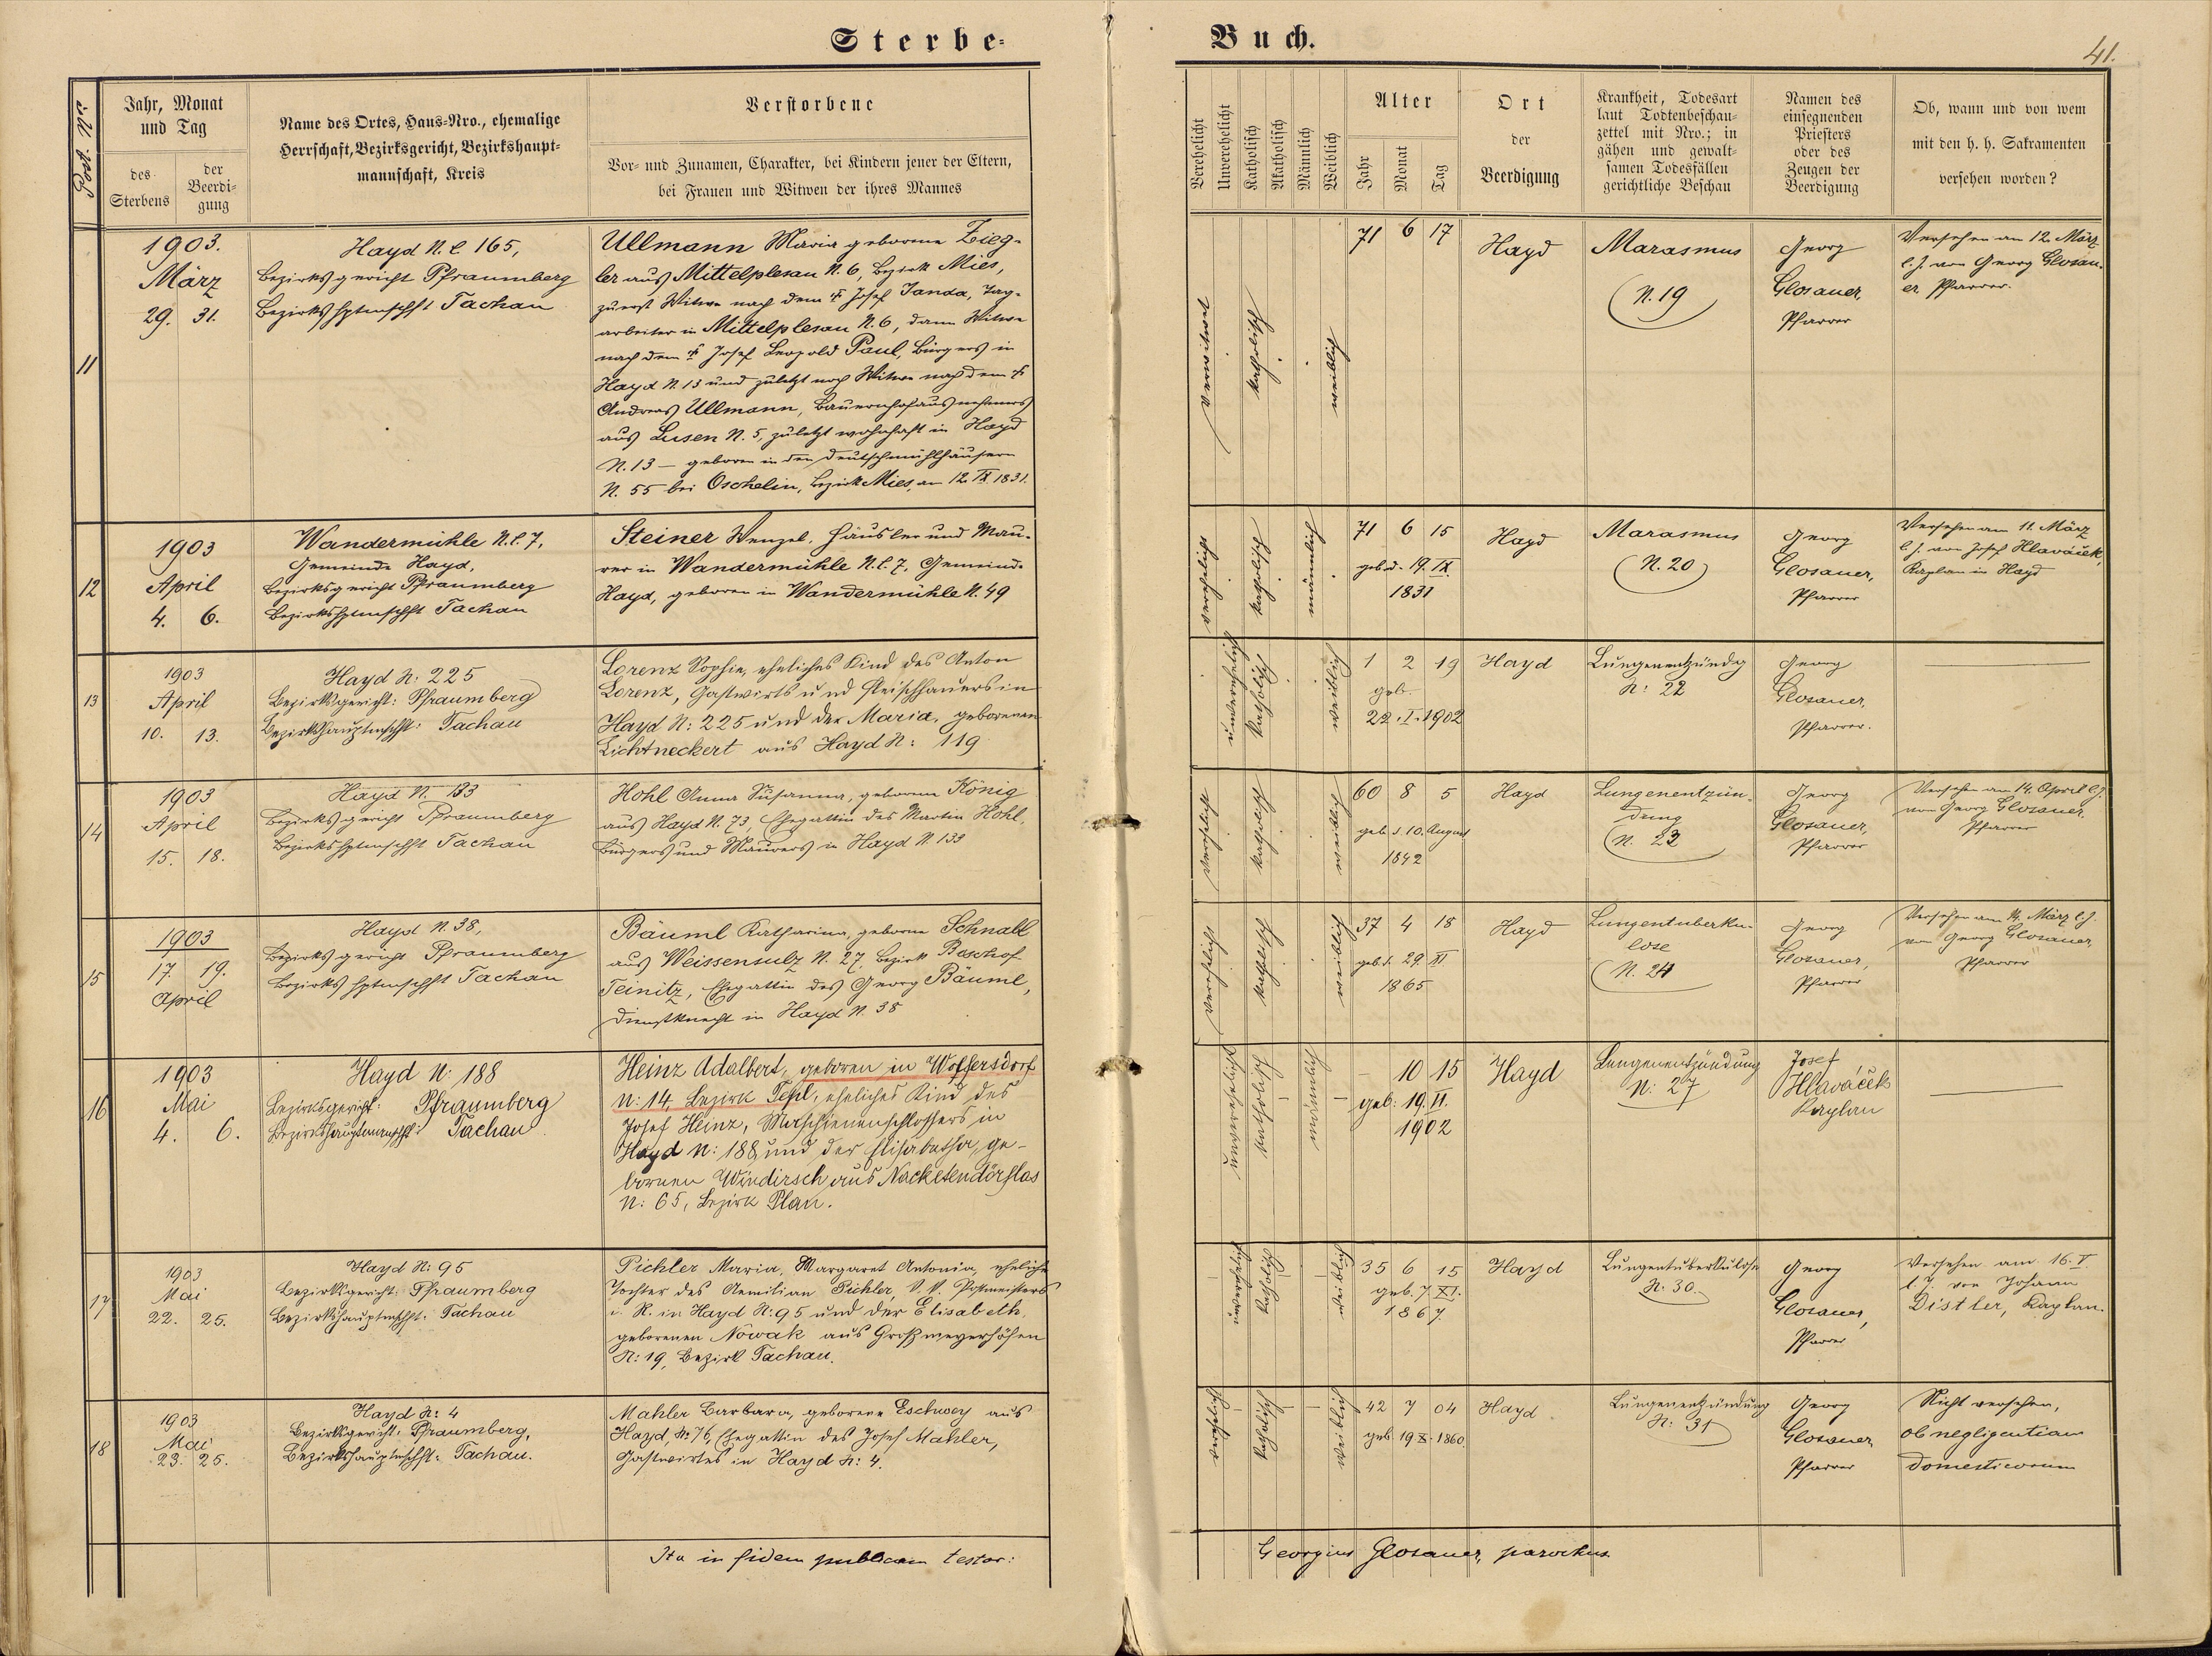 Sterbe-
Buch.
41.
Post. Nro.
Jahr, Monat
und Tag
des
Sterbens
der
Beerdi-
gung
Name des Ortes, Haus-Nro., ehemalige
Herrschaft, Bezirksgericht, Bezirkshaupt-
mannschaft, Kreis
Verstorbene
Vor- und Zunamen, Charakter, bei Kindern jener der Eltern,
bei Frauen und Witwen der ihres Mannes
Verehelicht
Unverehelicht
Katholisch
Akatholisch
Männlich
Weiblich
Alter
Jahr
Monat
Tag
Ort
der
Beerdigung
Krankheit, Todesart
laut Todtenbeschau-
zettel mit Nro.; in
gähen und gewalt-
samen Todesfällen
gerichtliche Beschau
Namen des
einsegnenden
Priesters
oder des
Zeugen der
Beerdigung
Ob, wann und von wem
mit den h. h. Sakramenten
versehen worden?
11
1903.
März
29. 31.
Hayd N.C. 165,
Bezirksgericht Pfraumberg
Bezirkshptmschft Tachau
Ullmann Maria geborene Zieg-
ler aus Mittelplesau N. 6, Bezirk Mies,
zuerst Witwe nach dem † Josef Janda, Tag-
arbeiter in Mittelplesau N. 6, dann Witwe
nach dem † Josef Leopold Paul, Bürgers in
Hayd N. 13 und zuletzt noch Witwe nach dem †
Andreas Ullmann, Bauernhofausnehmers
aus Lusen N. 5, zuletzt wohnhaft in Hayd
N. 13 – geboren in den Deutschmühlhäusern
N. 55 bei Oschelin, Bezirk Mies, am 12. IX 1831.
verwitwet
katholisch
weiblich
71 6 17
Hayd
Marasmus
N. 19
Georg
Glosauer,
Pfarrer
Versehen am 12. März
l. J. von Georg Glosau-
er, Pfarrer.
12
1903
April
4. 6.
Wandermühle N.C. 7,
Gemeinde Hayd,
Bezirksgericht Pfraumberg
Bezirkshptmschft Tachau
Steiner Wenzel, Häusler und Mau-
rer in Wandermühle N.C. 7, Gemeinde
Hayd, geboren in Wandermühle N. 49
verehelicht
katholisch
männlich
71 6 15
geb. d. 19. IX.
1831
Hayd
Marasmus
N. 20
Georg
Glosauer,
Pfarrer
Versehen am 11. März
l. J. von Josef Hlaváček,
Kaplan in Hayd
13
1903
April
10. 13.
Hayd N: 225
Bezirksgericht: Pfraumberg
Bezirkshauptmschft: Tachau
Lorenz Sophie, eheliches Kind des Anton
Lorenz, Gastwirts und Fleischhauers in
Hayd N: 225 und der Maria, geborenen
Lichtneckert aus Hayd N: 119
unverehelicht
katholisch
weiblich
1 2 19
geb.
22. I. 1902
Hayd
Lungenentzündg
N: 22
Georg
Glosauer,
Pfarrer.
14
1903
April
15. 18.
Hayd N. 133
Bezirksgericht Pfraumberg
Bezirkshptmschft Tachau
Hohl Anna Susanna, geborene König
aus Hayd N. 73, Ehegattin des Martin Hohl,
Bürgers und Maurers in Hayd N. 133
verehelicht
katholisch
weiblich
60 8 5
geb. d. 10. August
1842
Hayd
Lungenentzün-
dung
N. 23
Georg
Glosauer,
Pfarrer
Versehen am 14. April l. J.
von Georg Glosauer,
Pfarrer
15
1903
17. 19.
April
Hayd N. 38,
Bezirksgericht Pfraumberg
Bezirkshptmschft Tachau
Bäuml Katharina, geborene Schnabl
aus Weissensulz N. 27, Bezirk Bischof-
Teinitz, Ehegattin des Georg Bäuml,
Dienstknecht in Hayd N. 38
verehelicht
katholisch
weiblich
37 4 18
geb. d. 29. XI
1865
Hayd
Lungentuberku-
lose
N. 24
Georg
Glosauer,
Pfarrer
Versehen am 14. März l. J.
von Georg Glosauer,
Pfarrer
16
1903
Mai
4. 6.
Hayd N: 188
Bezirksgericht: Pfraumberg
Bezirkshauptmannschft: Tachau
Heinz Adalbert, geboren in Woffersdorf
N: 14, Bezirk Tepl, eheliches Kind des
Josef Heinz, Maschienenschlossers in
Hayd N: 188 und der Elisabetha, ge-
bornen Windirsch aus Nacketendörflas
N: 65, Bezirk Plan.
unverehelicht
katholisch
männlich
10 15
geb: 19. VI.
1902
Hayd
Lungenentzündung
N: 27
Josef
Hlaváček
Kaplan
17
1903
Mai
22. 25.
Hayd N: 95
Bezirksgericht: Pfraumberg
Bezirkshauptmschft: Tachau
Pichler Maria, Margaret Antonia, eheliche
Tochter des Aemilian Pichler, k. k. Postmeisters
i. R. in Hayd N: 95 und der Elisabeth,
geborenen Nowak aus Großmeyerhöfen
N: 19, Bezirk Tachau.
unverehelicht
katholisch
weiblich
35 6 15
geb. 7 XI.
1867.
Hayd
Lungentuberkulose
N: 30.
Georg
Glosauer,
Pfarrer
Versehen am 16. V.
l. J. von Johann
Distler, Kaplan.
18
1903
Mai
23. 25.
Hayd N: 4
Bezirksgericht: Pfraumberg,
Bezirkshauptmschft: Tachau.
Mahler Barbara, geborene Eschwey aus
Hayd, N: 76, Ehegattin des Josef Mahler,
Gastwirtes in Hayd N: 4.
verehelicht
katholisch
weiblich
42 7 04
geb. 19 X. 1860.
Hayd
Lungenentzündung
N: 31
Georg
Glosauer
Pfarrer
Nicht versehen,
ob negligentiam
domesticorum
Ita in fidem publicam testor:
Georgius Glosauer, parochus